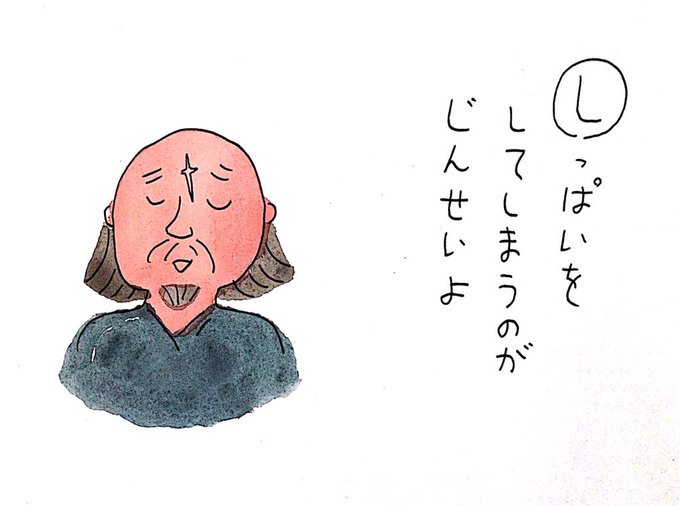 しっぱいを
してしまうのが
じんせいよ